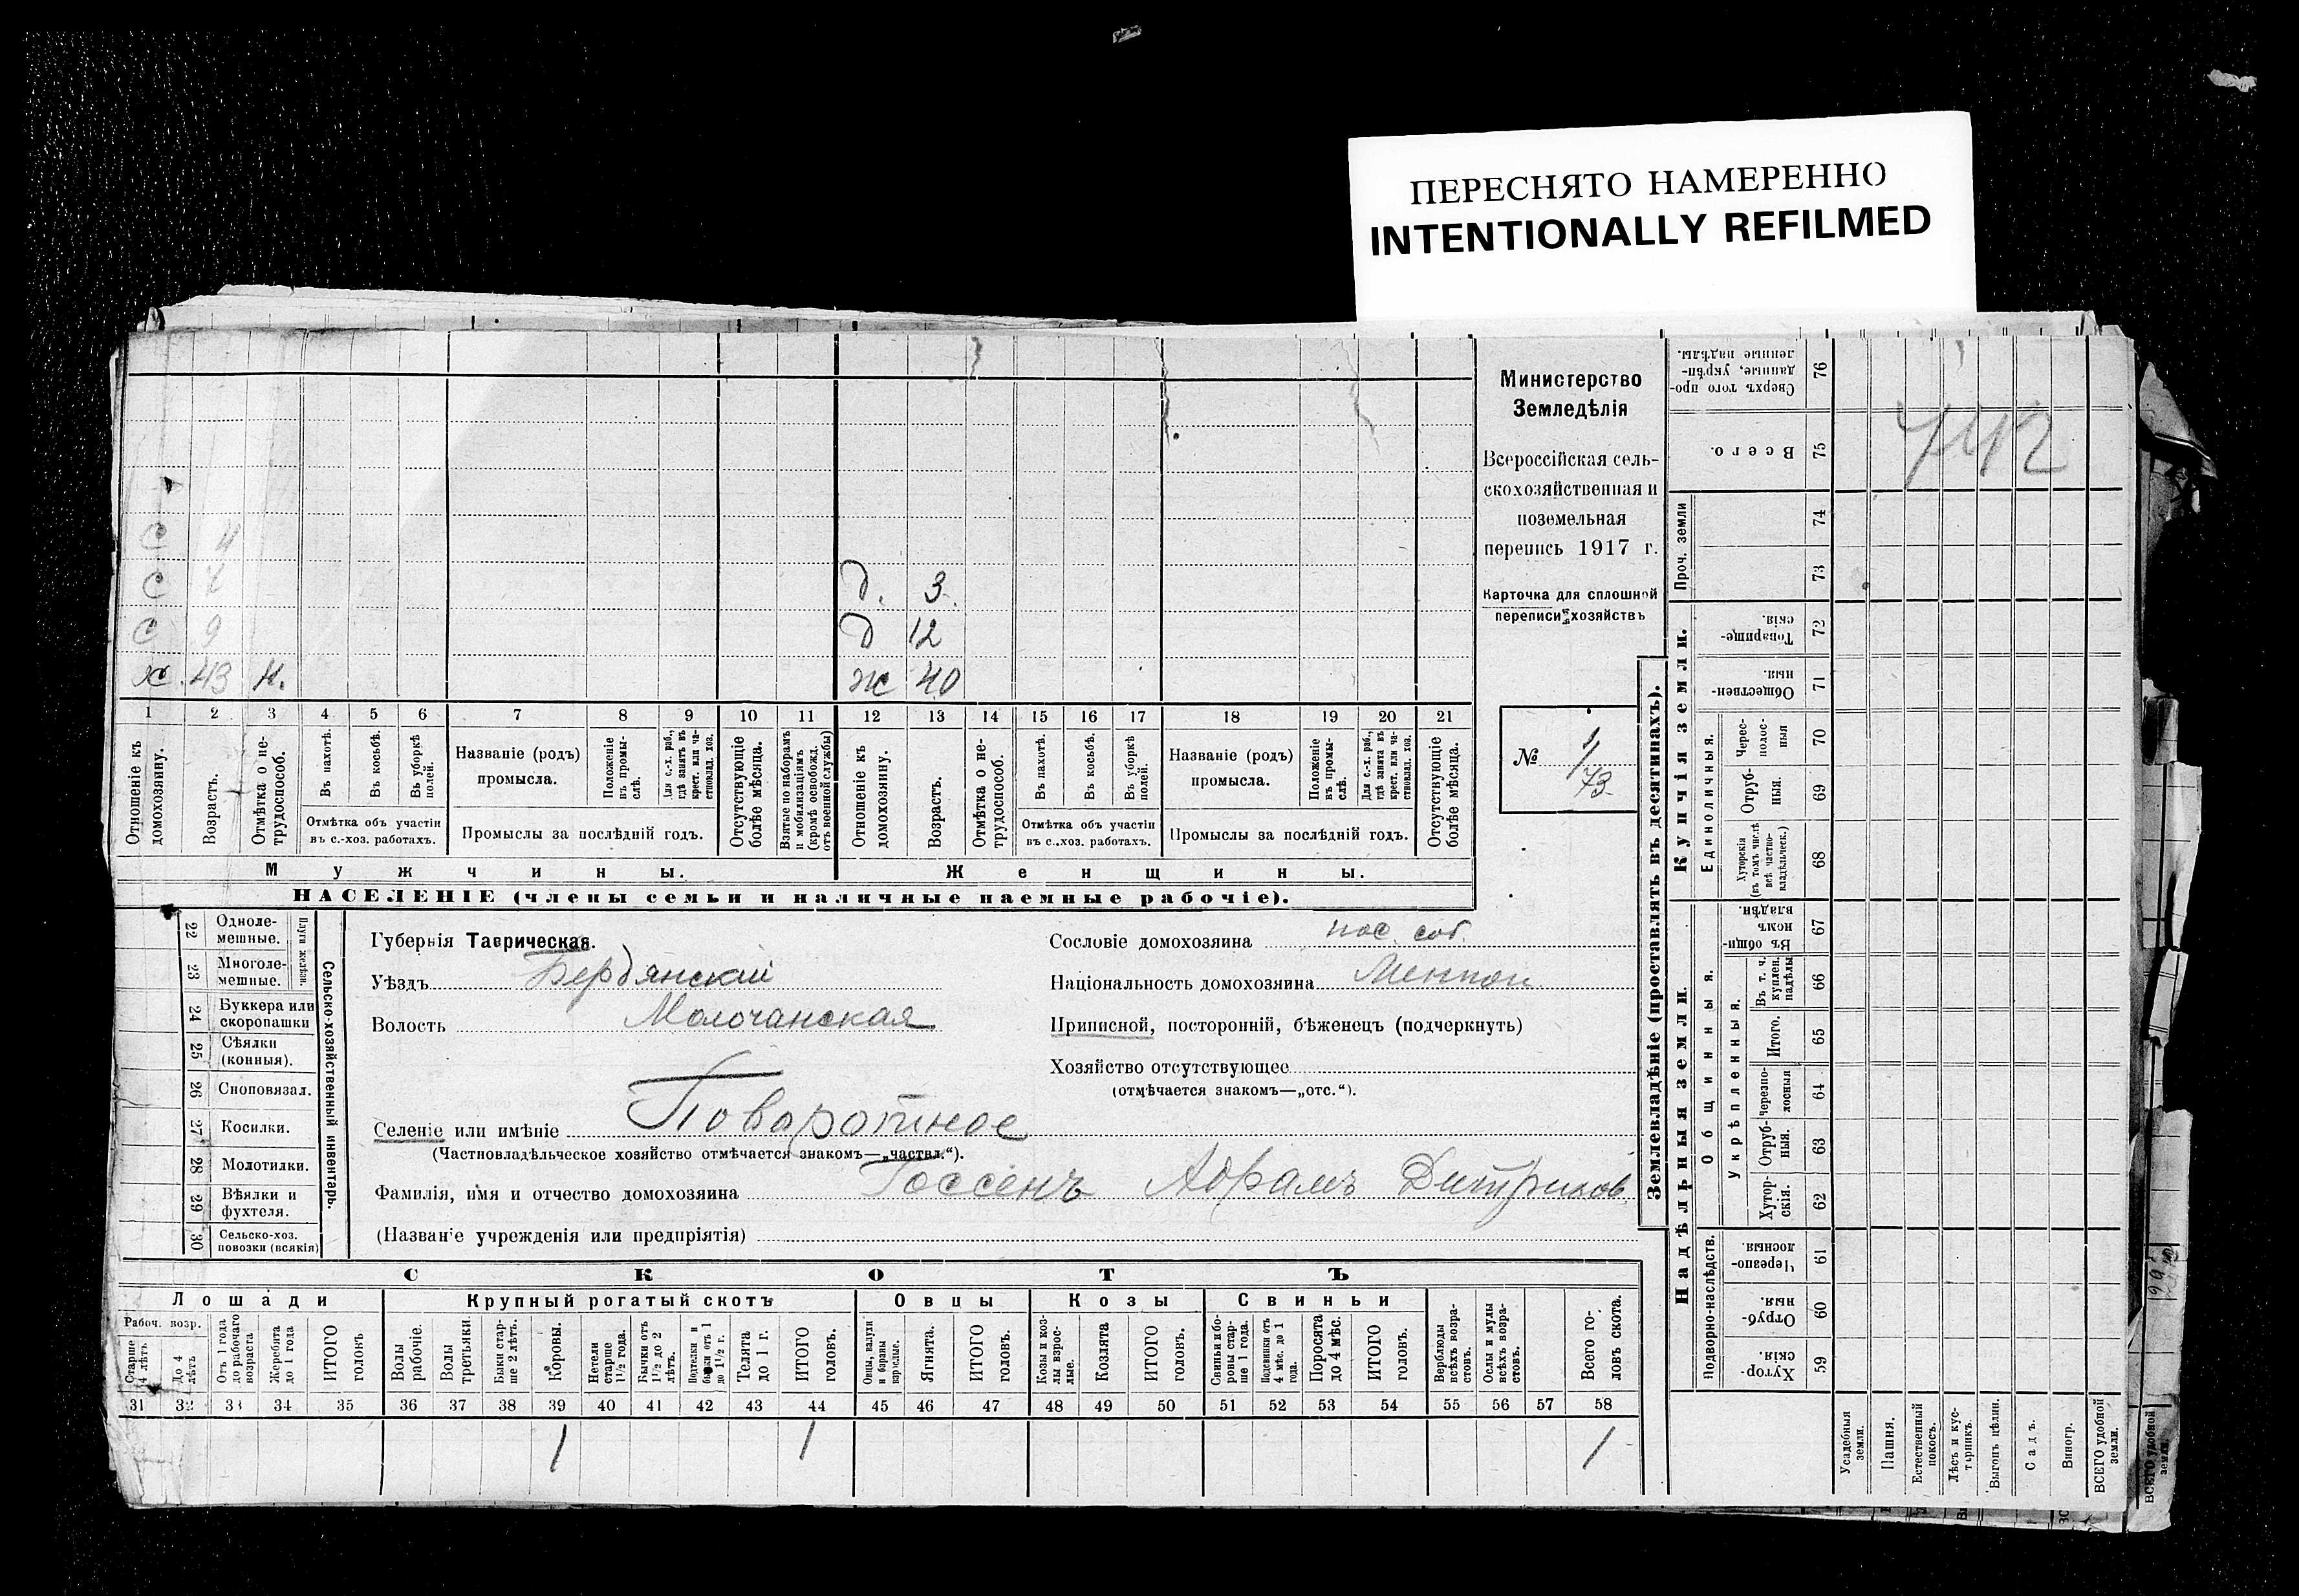 ПЕРЕСНЯТО НАМЕРЕННО
INTENTIONALLY REFILMED
С 4
С 7 Д. 3.
С 9 Д 12
х. 43 н. ж 40
1 2 3 4 5 6 7 8 9 10 11 12 13 14 15 16 17 18 19 20 21
Отношеніе къ домохозяину.
Возрастъ.
Отмѣтка о не-трудоспособ.
Въ пахотѣ.
Въ косьбѣ.
Въ уборкѣ полей.
Отмѣтка объ участіи
въ с.-хоз. работахъ.
Названіе (родъ)
промысла.
Положеніе въ промы-слѣ.
Для с.-х. раб., гдѣ занятъ въ крест. или ча-стновлад. хоз.
Промыслы за послѣдній годъ.
Отсутствующіе болѣе мѣсяца.
Взятые по наборамъ и мобилизаціямъ (кромѣ освобожд. отъ военной службы)
Отношеніе къ домохозяину.
Возрастъ.
Отмѣтка о не-трудоспособ.
Въ пахотѣ.
Въ косьбѣ.
Въ уборкѣ полей.
Отмѣтка объ участіи
въ с.-хоз. работахъ.
Названіе (родъ)
промысла.
Положеніе въ промы-слѣ.
Для с.-х. раб., гдѣ занята въ крест. или ча-стновлад. хоз.
Промыслы за послѣдній годъ.
Отсутствующіе болѣе мѣсяца.
Мужчины.
Женщины.
НАСЕЛЕНІЕ (члены семьи и наличные наемные рабочіе).
Министерство
Земледѣлія
Всероссійская сель-
скохозяйственная и
поземельная
перепись 1917 г.
Карточка для сплошной
переписи хозяйствъ
№ 1/73
22 Одноле-мешные.
23 Многоле-мешные.
Плуги желѣзн.
24 Буккера или скоропашки
25 Сѣялки (конныя).
26 Сноповязал.
27 Косилки.
28 Молотилки.
29 Вѣялки и фухтеля.
30 Сельско-хоз. повозки (всякія)
Сельско-хозяйственный инвентарь.
Губернія Таврическая.
Уѣздъ Бердянскій
Волость Молочанская
Селеніе или имѣніе Поворотное
(Частновладѣльческое хозяйство отмѣчается знакомъ—„частвл.“).
Фамилія, имя и отчество домохозяина Госсенъ Абрамъ Дитрихов.
(Названіе учрежденія или предпріятія)
Сословіе домохозяина пос. соб.
Національность домохозяина Меннон.
Приписной, посторонній, бѣженецъ (подчеркнуть)
Хозяйство отсутствующее
(отмѣчается знакомъ—„отс.“).
СКОТЪ
Лошади
Крупный рогатый скотъ
Овцы
Козы
Свиньи
Рабоч. возр.
Старше 4 лѣтъ
До 4 лѣтъ
Отъ 1 года до рабочаго возраста
Жеребята до 1 года
ИТОГО головъ
Волы рабочіе.
Волы третьяки.
Быки стар-ше 2 лѣтъ.
Коровы.
Нетели старше 1½ года.
Бычки отъ 1½ до 2 лѣтъ.
Подтелки и бычки отъ 1 до 1½ г.
Телята до 1 г.
ИТОГО головъ.
Овцы, валухи и бараны взрослые.
Ягнята.
ИТОГО головъ.
Козы и коз-лы взрос-лые.
Козлята
ИТОГО головъ.
Свиньи и бо-ровы стар-ше 1 года.
Подсвинки отъ 4 мѣс. до 1 года.
Поросята до 4 мѣс.
ИТОГО головъ.
Верблюды всѣхъ возра-стовъ.
Ослы и мулы всѣхъ возра-стовъ.
Всего го-ловъ скота.
31 32 33 34 35 36 37 38 39 40 41 42 43 44 45 46 47 48 49 50 51 52 53 54 55 56 57 58
1 1 1
Землевладѣніе (проставлять въ десятинахъ).
Купчія земли.
Надѣльныя земли.
Сверхъ того про-данные, укрѣп-ленные надѣлы. 76
Всего. 75
Проч. земли 74
73
Товарище-скія. 72
Обществен-ныя. 71
Единоличныя.
Черес-полос-ныя 70
Отруб-ныя. 69
Хуторскія (въ томъ числѣ всѣ частно-владѣльческ.) 68
Общинныя.
Въ общин-номъ владѣн. 67
Укрѣпленныя.
Въ т. ч. куплен. надѣлы 66
Итого. 65
Черезпо-лосныя 64
Отруб-ныя. 63
Хутор-скія. 62
Подворно-наслѣдств.
Черезпо-лосныя. 61
Отруб-ныя. 60
Хутор-скія. 59
Усадебныя земли.
Пашня.
Естественный покосъ.
Лѣсъ и кус-тарникъ.
Выгонъ цѣлин.
Садъ.
Виногр.
ВСЕГО удобной земли.
ВСЕГО удобной земли.